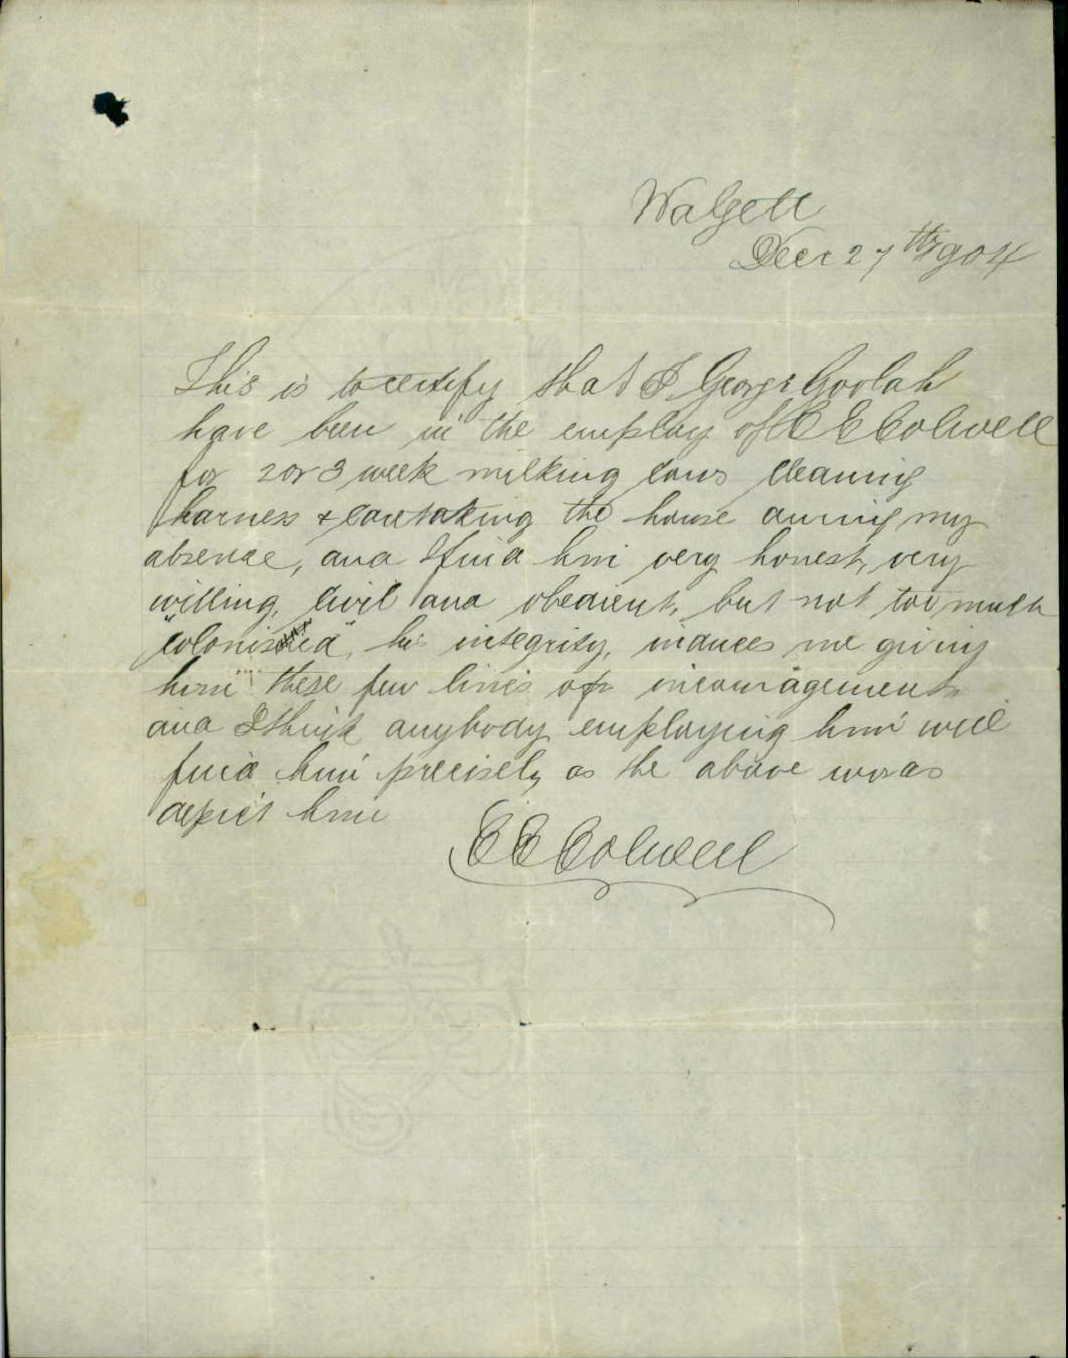 Walgett
Dec 27th 1904
This is to certify that I George Goolah
have been in the employ of E E Colwell
for 2 or 3 week milking cows cleaning
harness & caretaking the house during my
absence, and I find him very honest, very
willing, civil and obedient, but not too much
"colonised", his integrity, induces me giving
him these few lines of incouragement
and I think anybody employing him will
find him precisely as the above words
depict him
E E Colwell